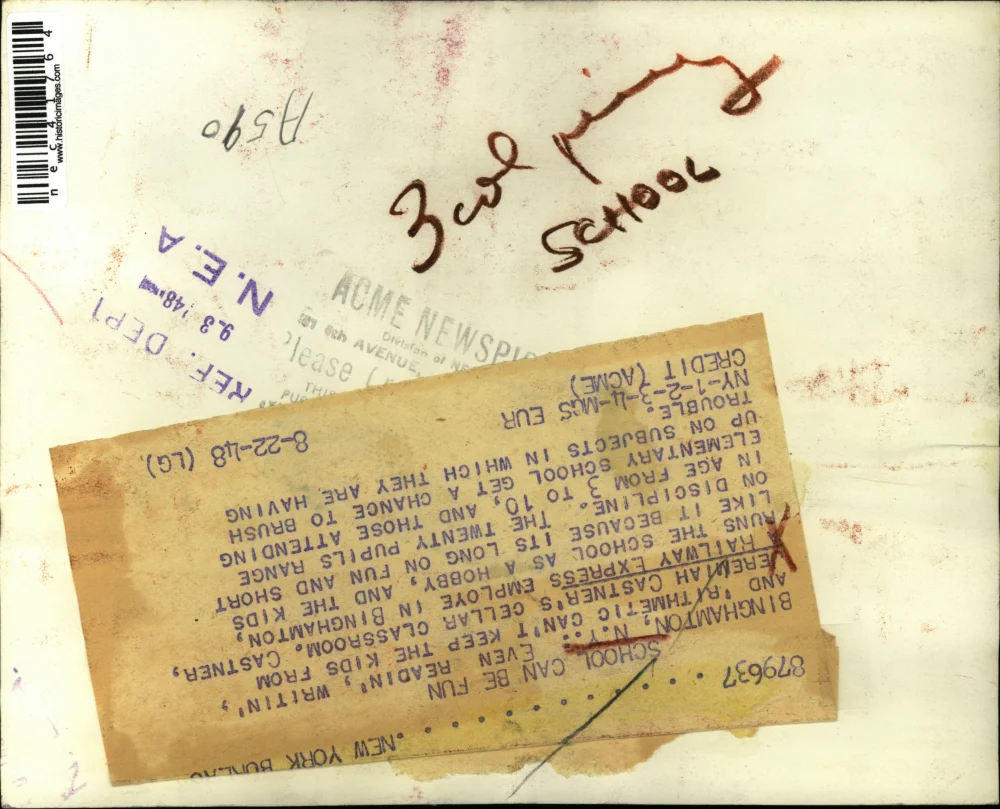 nec41764
www.historicimages.com
A590
3 col
SCHOOL
N.E.A
9-3 '48
REF. DEPT
ACME NEWSPIC
Division of NE
8th AVENUE,
Please
THI
PUR
879637 . . . . . . . . . . . . . . NEW YORK BUREAU
SCHOOL CAN BE FUN
BINGHAMTON, N.Y.: EVEN READIN', WRITIN',
AND 'RITHMETIC CAN'T KEEP THE KIDS FROM
JEREMIAH CASTNER'S CELLAR CLASSROOM. CASTNER,
RAILWAY EXPRESS EMPLOYE IN BINGHAMTON,
RUNS THE SCHOOL AS A HOBBY, AND THE KIDS
LIKE IT BECAUSE ITS LONG ON FUN AND SHORT
ON DISCIPLINE. THE TWENTY PUPILS RANGE
IN AGE FROM 3 TO 10, AND THOSE ATTENDING
ELEMENTARY SCHOOL GET A CHANCE TO BRUSH
UP ON SUBJECTS IN WHICH THEY ARE HAVING
TROUBLE.
NY-1-2-3-4-MGS EUR
CREDIT (ACME) 8-22-48 (LG)